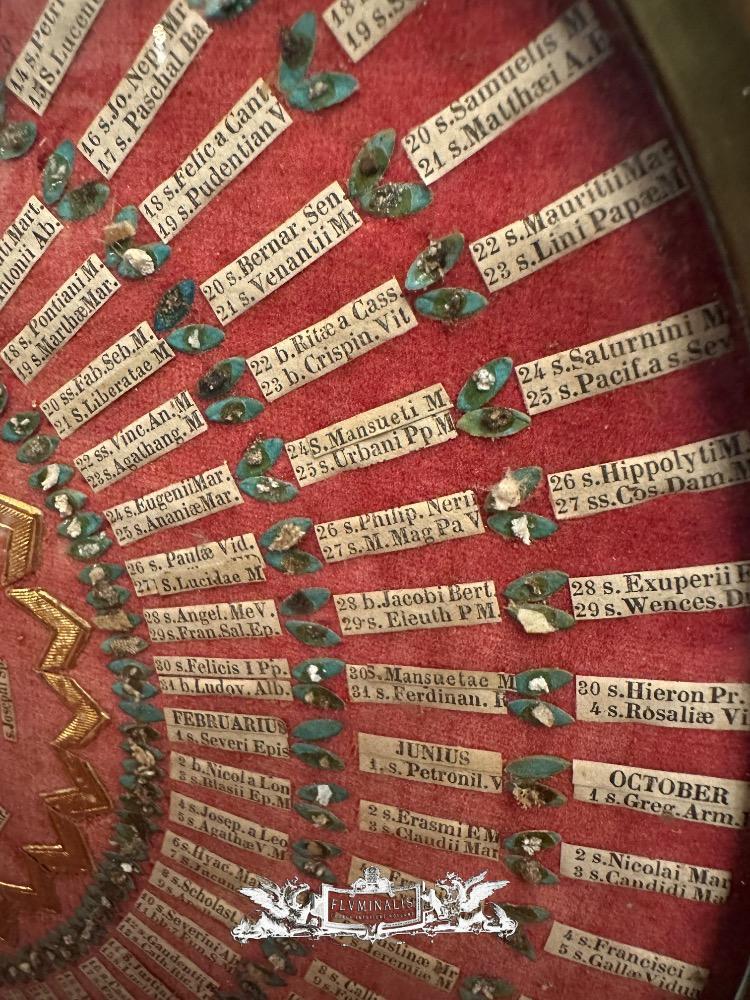 14 s.Petri
15 S.Lucen
16 s.Jo. Nep. M
17 s. Paschal Ba
18 s.Felic a Cant
19 s.Pudentian V
20 s.Bernar. Sen.
21 s. Venantii Mr
22 b.Ritæ a Cass.
23 b. Crispin. Vit
24S. Mansueti M
25 s.Urbani Pp M
26 s.Philip. Neri
27 s.M. Mag Pa V
28 b.Jacobi Bert
29 s. Eleuth P M
30S. Mansuetae M
31 s. Ferdinan. R
JUNIUS
1. s. Petronil. V
2 s.Erasmi E M
3 s.Claudii Mar
18
19 s.
20 s.Samuelis M
21 s.Matthæi A.E
22 s.Mauritii Mar
23 s.Lini Papæ M
24 s.Saturnini M
25 s.Pacif.a s.Sev
26 s.Hippolyti M.
27 ss.Cos.Dam.M
28 s. Exuperii E
29 s.Wences.D
30 s.Hieron Pr.
4 s.Rosaliæ Vi
OCTOBER
1 s.Greg.Arm.
2 s.Nicolai Mar
3 s.Candidi Ma
4 s.Francisci
5 s.Gallæ Vidua
Mart.
Ab.
18 s.Pontiani M.
19 s.Marthæ Mar.
20 ss.Fab.Seb.M.
21 S.Liberatae M
22 ss.Vinc.An.M
23 s.Agathang. M
24 s.Eugenii Mar.
25 s.Ananiæ Mar.
26 s. Paulæ Vid.
27 s.Lucidae M
28 s.Angel. Me V
29 s.Fran.Sal.Ep.
30 s.Felicis I Pp.
31 b.Ludov. Alb.
FEBRUARIUS
1 s.Severi Epis
2 b.Nicol a Lon
3 s.Blasii Ep.M
4 s.Josep. a Leo
5 s.Agathæ V.M
6 s.Hyac. Ma
8 s.Scholast
FLVMINALIS